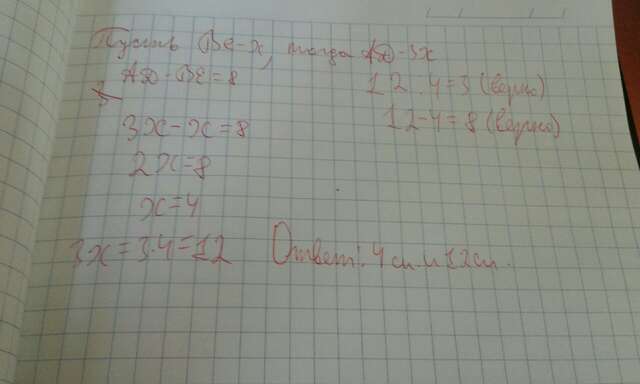 Пусть BC-x, тогда AD-3x
AD-BC=8
3x-x=8
2x=8
x=4
3x=3·4=12
12:4=3 (верно)
12-4=8 (верно)
Ответ: 4 см и 12 см.